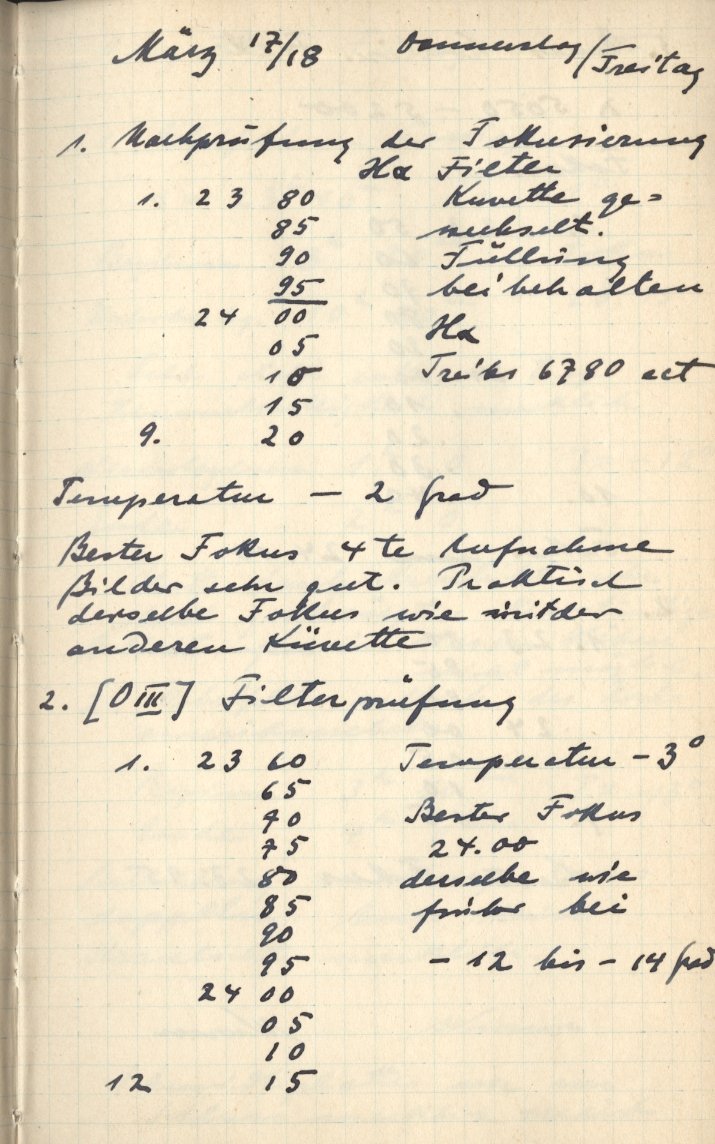 März 17/18 Donnerstag/Freitag
1. Nachprüfung der Fokusierung
Hα Filter
1. 23 80 Kuvette ge=
85 wechselt.
90 Füllung
95 beibehalten
24 00 Hα
05
10 6780
15
9. 20
Temperatur – 2 Grad
Bester Fokus 4te Aufnahme
Bilder sehr gut. Praktisch
derselbe Fokus wie mit der
anderen Küvette
2. [OIII] Filterprüfung
1. 23 60 Temperatur – 3°
65
70 Bester Fokus
75 24.00
80 derselbe wie
85 früher bei
90
95 – 12 bis – 14 Grad
24 00
05
10
12 15